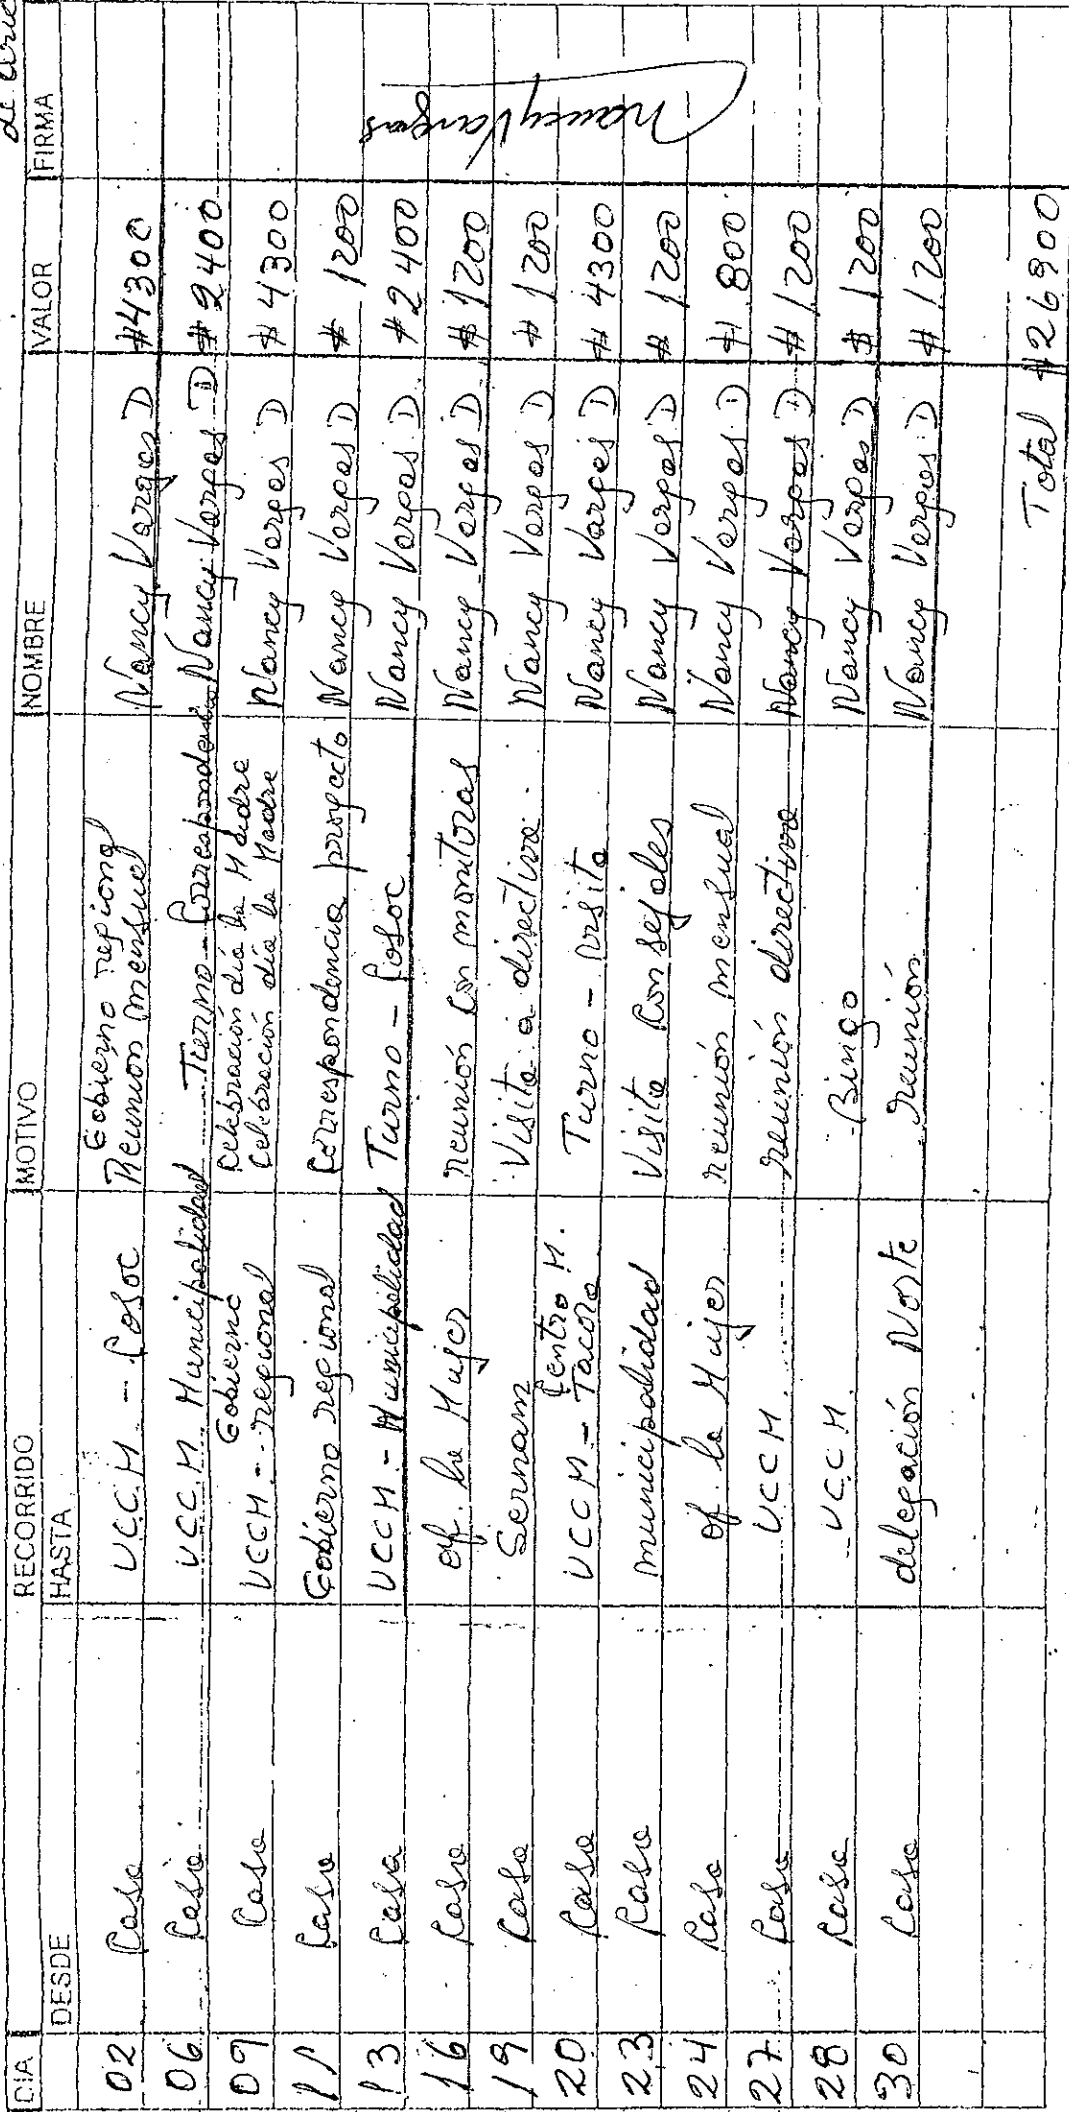 DIA RECORRIDO MOTIVO NOMBRE VALOR FIRMA
DESDE HASTA
Gobierno regional
02 Casa UCCM - Cosoc Reunion mensual Nancy Vargas D #4300
06 Casa UCCM Municipalidad Turno - Correspondencia Nancy Vargas D #2400
Gobierno Celebración día la Madre
09 Casa UCCM - regional Celebración día la Madre Nancy Vargas D #4300
11 Casa Gobierno regional Correspondencia proyecto Nancy Vargas D #1200
13 Casa UCCM - Municipalidad Turno - Cosoc Nancy Vargas D #2400
16 Casa of. la Mujer reunión con monitoras Nancy Vargas D #1200
19 Casa Sernam Visita a directiva Nancy Vargas D #1200
Centro M.
20 Casa UCCM - Tacora Turno - visita Nancy Vargas D #4300
23 Casa municipalidad Visita Consejales Nancy Vargas D #1200
24 Casa of. la Mujer reunión mensual Nancy Vargas D #800
27 Casa UCCM reunión directiva Nancy Vargas D #1200
28 Casa UCCM Bingo Nancy Vargas D #1200
30 Casa delegación Norte reunión Nancy Vargas D #1200
Nancy Vargas
Total #26900